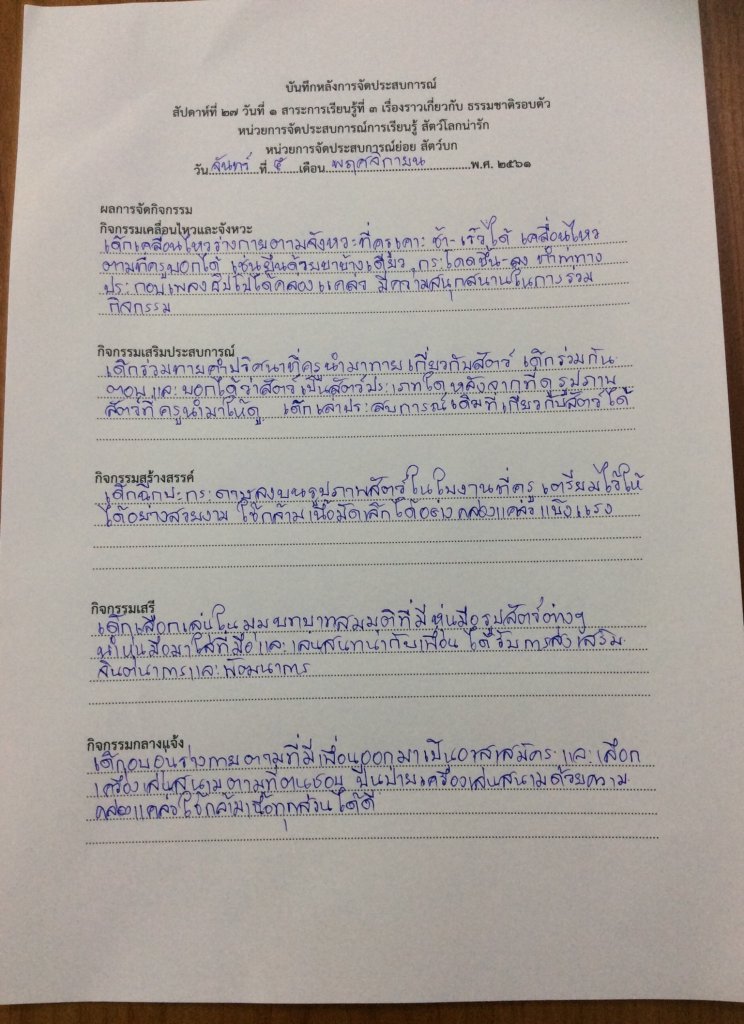 บันทึกหลังการจัดประสบการณ์
สัปดาห์ที่ ๒๗ วันที่ ๑ สาระการเรียนรู้ที่ ๓ เรื่องราวเกี่ยวกับ ธรรมชาติรอบตัว
หน่วยการจัดประสบการณ์การเรียนรู้ สัตว์โลกน่ารัก
หน่วยการจัดประสบการณ์ย่อย สัตว์บก
วัน จันทร์ ที่ ๕ เดือน พฤศจิกายน พ.ศ. ๒๕๖๑
ผลการจัดกิจกรรม
กิจกรรมเคลื่อนไหวและจังหวะ
เด็กเคลื่อนไหวร่างกายตามจังหวะที่ครูเคาะ ช้า-เร็วได้ เคลื่อนไหว
ตามที่ครูบอกได้ เช่นยืนด้วยขาข้างเดียว กระโดดขึ้น-ลง ทำท่าทาง
ประกอบเพลงได้คล่องแคล่ว มีความสนุกสนานในการร่วม
กิจกรรม
กิจกรรมเสริมประสบการณ์
เด็กร่วมทายคำปริศนาที่ครูนำมาทายเกี่ยวกับสัตว์ เด็กร่วมกัน
ตอบและบอกได้ว่าสัตว์เป็นสัตว์ประเภทใด หลังจากที่ดูรูปภาพ
สัตว์ที่ครูนำมาให้ดู เด็กเล่าประสบการณ์เดิมที่เกี่ยวกับสัตว์ได้
กิจกรรมสร้างสรรค์
เด็กฉีกปะกระดาษลงบนรูปภาพสัตว์ในใบงานที่ครูเตรียมไว้ให้
ได้อย่างสวยงาม ใช้กล้ามเนื้อมัดเล็กได้อย่างคล่องแคล่วแข็งแรง
กิจกรรมเสรี
เด็กเลือกเล่นในมุมบทบาทสมมุติที่มีหุ่นมือรูปสัตว์ต่างๆ
นำหุ่นมือมาใส่ที่มือและเล่นสนทนากับเพื่อน ได้รับการส่งเสริม
จินตนาการและพัฒนาการ
กิจกรรมกลางแจ้ง
เด็กอบอุ่นร่างกายตามที่มีเพื่อนออกมาเป็นอาสาสมัคร และเลือก
เครื่องเล่นสนามตามที่ตนชอบ ปีนป่ายเครื่องเล่นสนามด้วยความ
คล่องแคล่วใช้กล้ามเนื้อทุกส่วนได้ดี